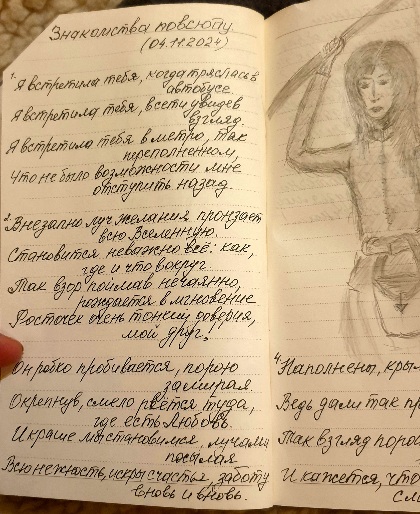 Знакомства повсюду.
(04.11.2024)
1. Я встретила тебя, когда тряслась в
автобусе.
Я встретила тебя, в сети увидев
взгляд.
Я встретила тебя в метро, так
переполненном,
Что не было возможности мне
отступить назад.
2. Внезапно луч желания пронзает
всю Вселенную.
Становится неважно всё: как,
где и что вокруг.
Так взор поймав нечаянно,
рождается в мгновение
Росточек очень тонкий доверия,
мой друг.
Он робко пробивается, порою
замирая.
Окрепнув, смело рвётся туда,
где есть Любовь.
И краше мы становимся, лучами
посылая
Всю нежность, искры счастья, заботу
вновь и вновь.
4. Наполнены, кры
Ведь дали так пр
Так взгляд поро
И кажется, что